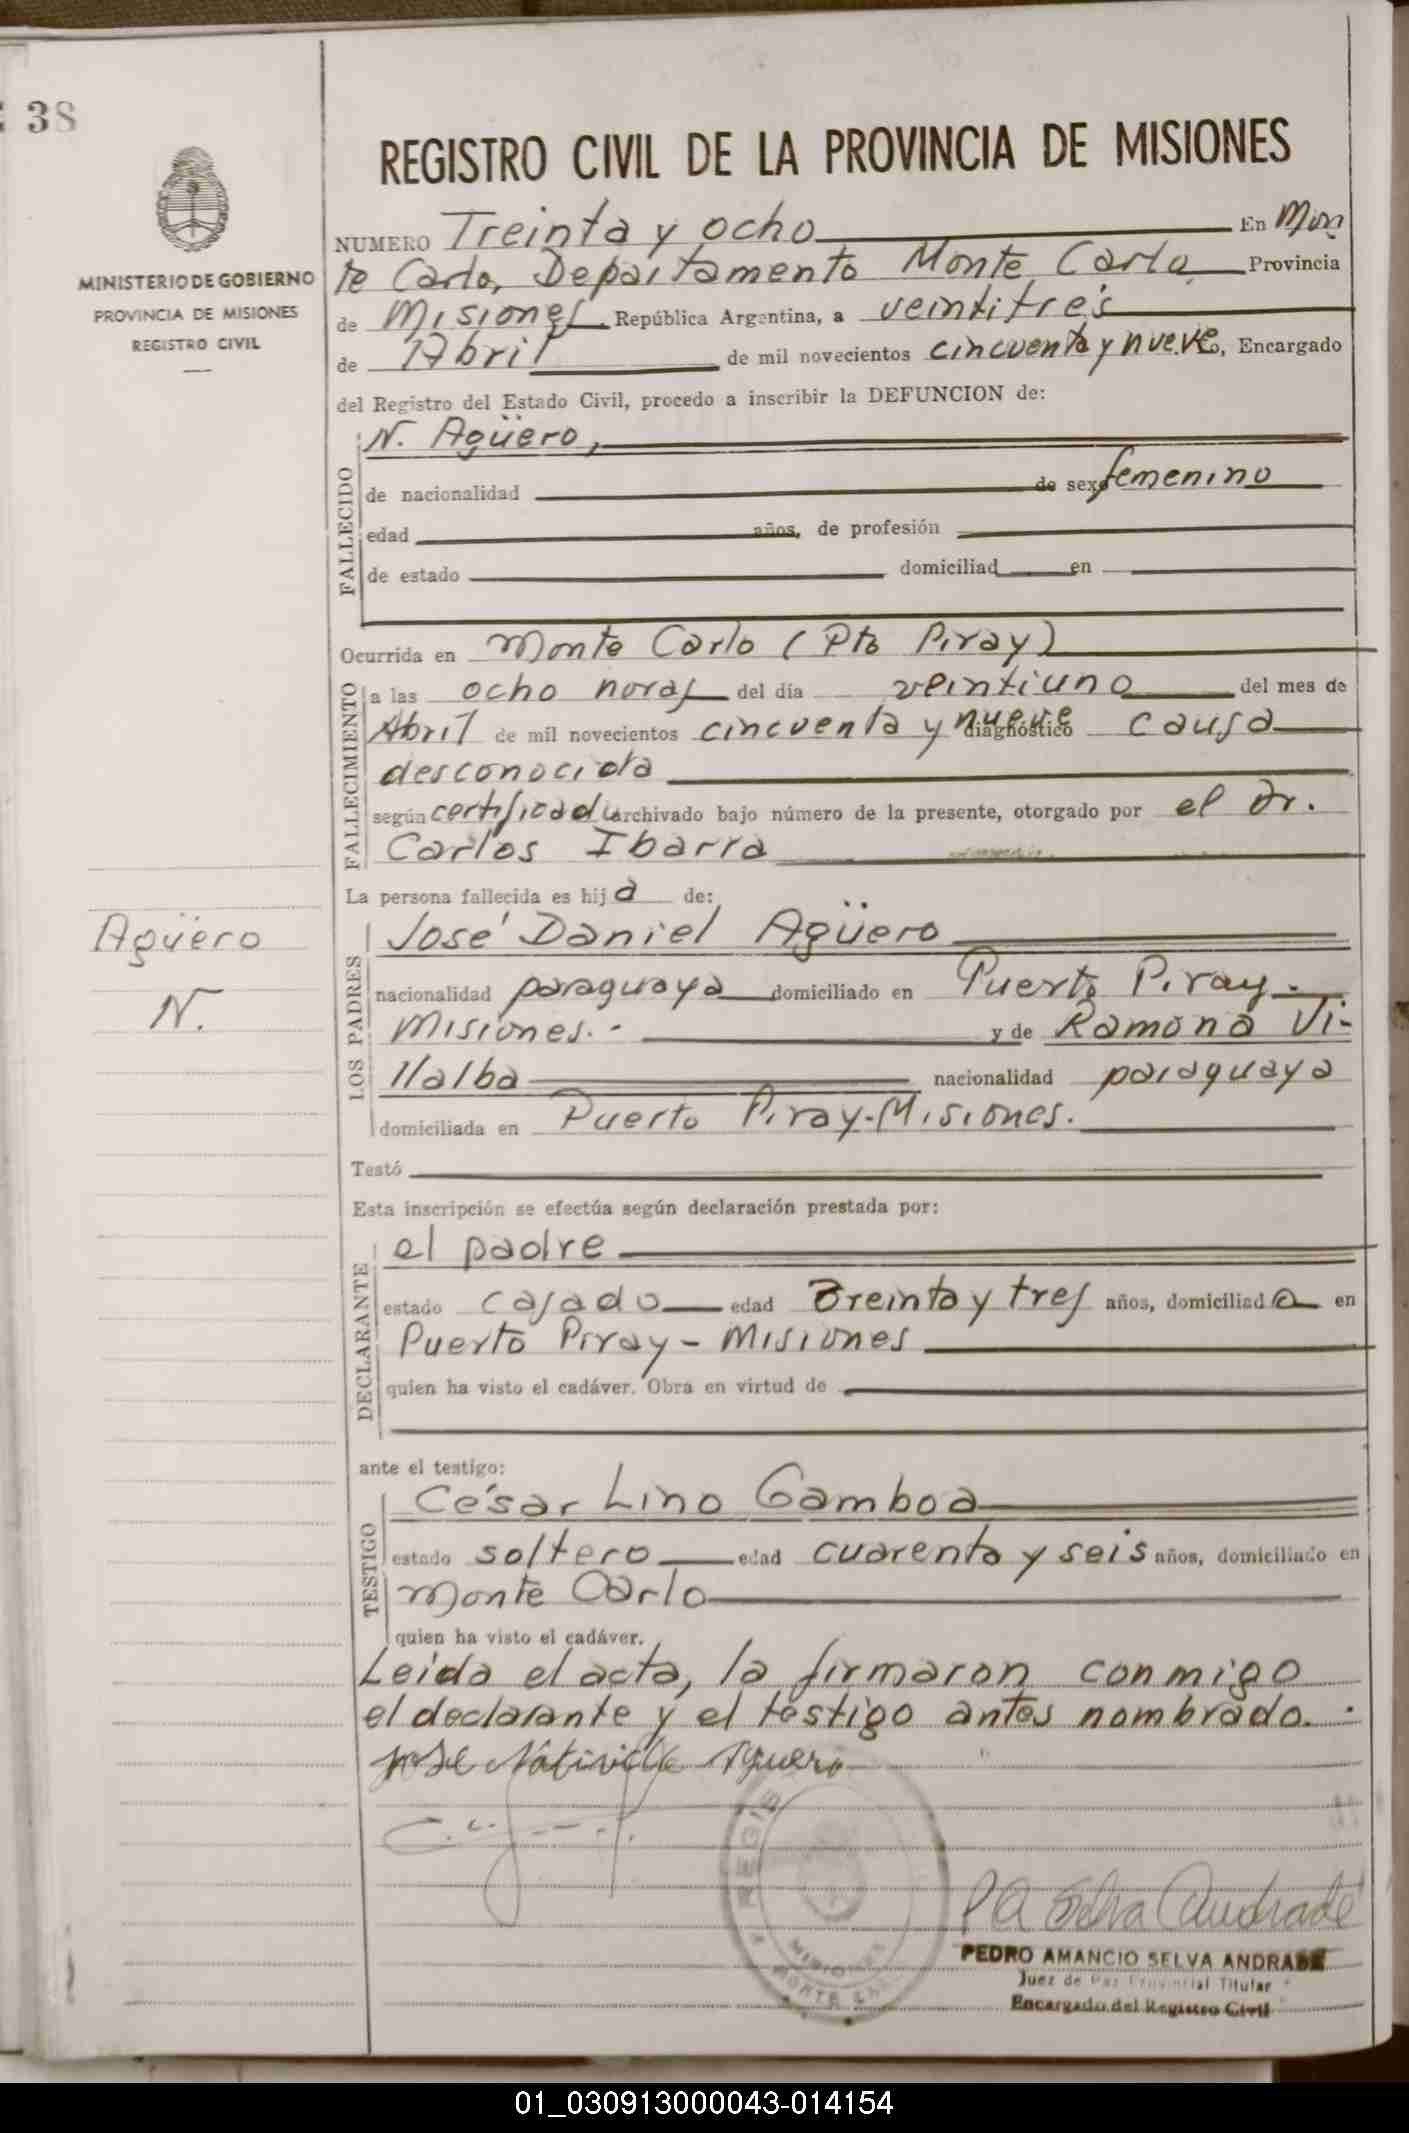 38
MINISTERIO DE GOBIERNO
PROVINCIA DE MISIONES
REGISTRO CIVIL
REGISTRO CIVIL DE LA PROVINCIA DE MISIONES
NUMERO Treinta y ocho En Mon
te Carlo, Departamento Monte Carlo Provincia
de Misiones República Argentina, a veintitrés
de Abril de mil novecientos cincuenta y nueve, Encargado
del Registro del Estado Civil, procedo a inscribir la DEFUNCION de:
FALLECIDO
N. Agüero,
de nacionalidad de sexo femenino
edad años, de profesión
de estado domiciliad en
Ocurrida en Monte Carlo (Pto Piray)
FALLECIMIENTO
a las ocho horas del día veintiuno del mes de
Abril de mil novecientos cincuenta y nueve diagnóstico causa
desconocida
según certificado archivado bajo número de la presente, otorgado por el Dr.
Carlos Ibarra
La persona fallecida es hija de:
Agüero
N.
LOS PADRES
José Daniel Agüero
nacionalidad paraguaya domiciliado en Puerto Piray -
Misiones. - y de Ramona Vi-
llalba nacionalidad paraguaya
domiciliada en Puerto Piray-Misiones.
Testó
Esta inscripción se efectúa según declaración prestada por:
DECLARANTE
el padre
estado casado edad Treinta y tres años, domiciliado en
Puerto Piray - Misiones
quien ha visto el cadáver. Obra en virtud de
ante el testigo:
TESTIGO
César Lino Gamboa
estado soltero edad cuarenta y seis años, domiciliado en
Monte Carlo
quien ha visto el cadáver.
Leida el acta, la firmaron conmigo
el declarante y el testigo antes nombrado.
José Agüero
MISIONES
MONTE
P A Selva Andrade
PEDRO AMANCIO SELVA ANDRADE
Juez de Paz Provincial Titular
Encargado del Registro Civil
01_030913000043-014154